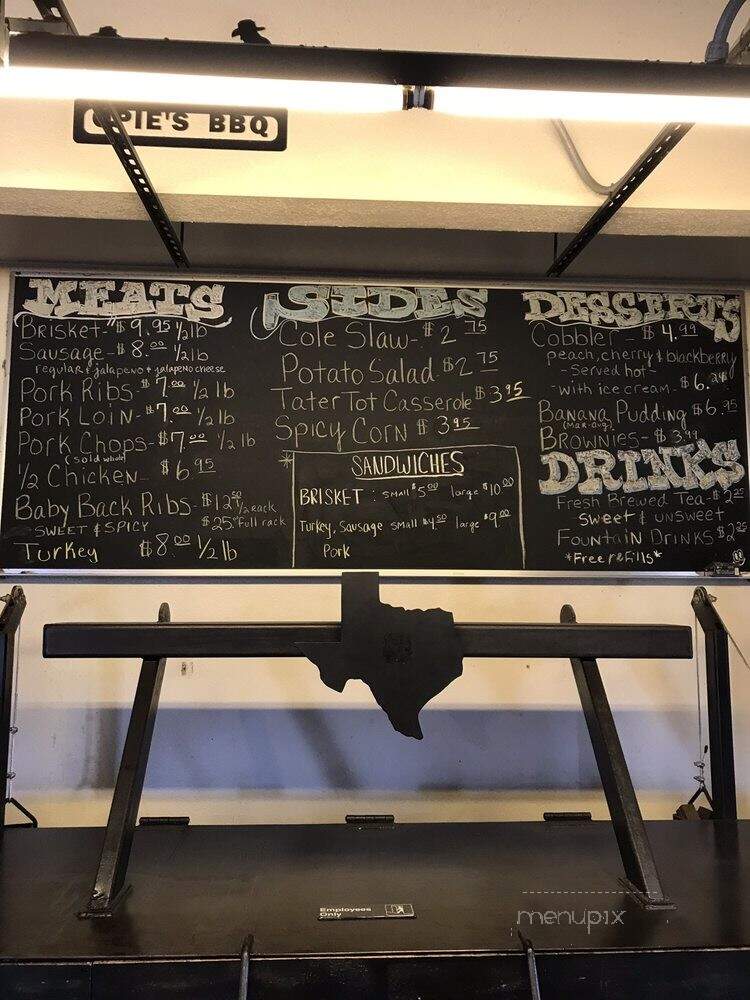 OPIE'S BBQ
MEATS
Brisket - $9.95 1/2 lb
Sausage - $8.00 1/2 lb
regular & jalapeno & jalapeno cheese
Pork Ribs - $7.00 1/2 lb
Pork Loin - $7.00 1/2 lb
Pork Chops - $7.00 1/2 lb
(sold whole)
1/2 Chicken - $6.95
Baby Back Ribs - $12.50 1/2 rack
SWEET & SPICY $25.00 full rack
Turkey $8.00 1/2 lb
SIDES
Cole Slaw - $2.75
Potato Salad - $2.75
Tater Tot Casserole $3.95
Spicy Corn $3.95
* SANDWICHES
BRISKET: small $5.00 large $10.00
Turkey, Sausage small $4.50 large $9.00
Pork
DESSERTS
Cobbler - $4.99
peach, cherry & blackberry
- Served hot -
- with ice cream - $6.24
Banana Pudding $6.95
(mar-aug)
Brownies - $3.99
DRINKS
Fresh Brewed Tea - $2.25
sweet & unsweet
Fountain Drinks $2.25
*Free refills*
Employees
Only
menupix